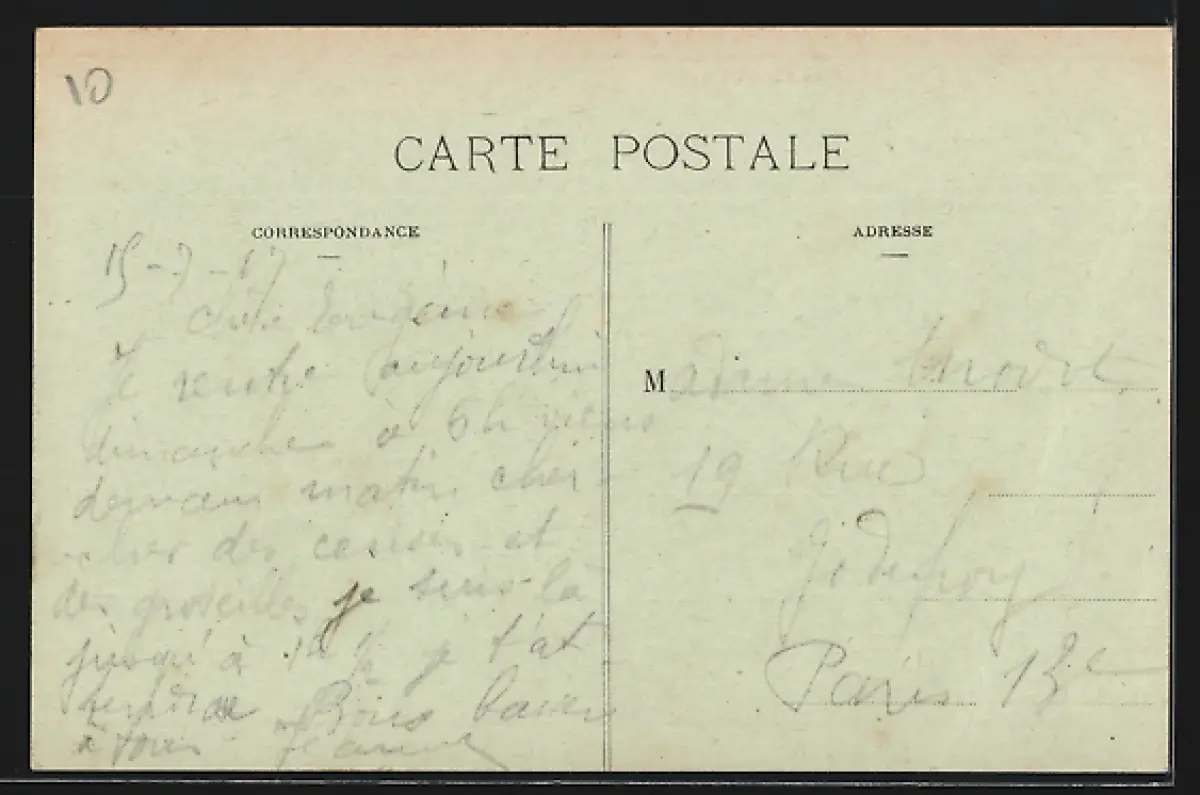 10
CARTE POSTALE
CORRESPONDANCE
ADRESSE
15-7-17
Chère Eugénie
Je rentre aujourdhui
dimanche à 6h viens
demain matin cher-
cher des cerises et
des groseilles je suis là
jusqu'à je t'at-
tendrai Bons baisers
à tous Jeanne
Madame
19 Rue
Godefroy
Paris 13e